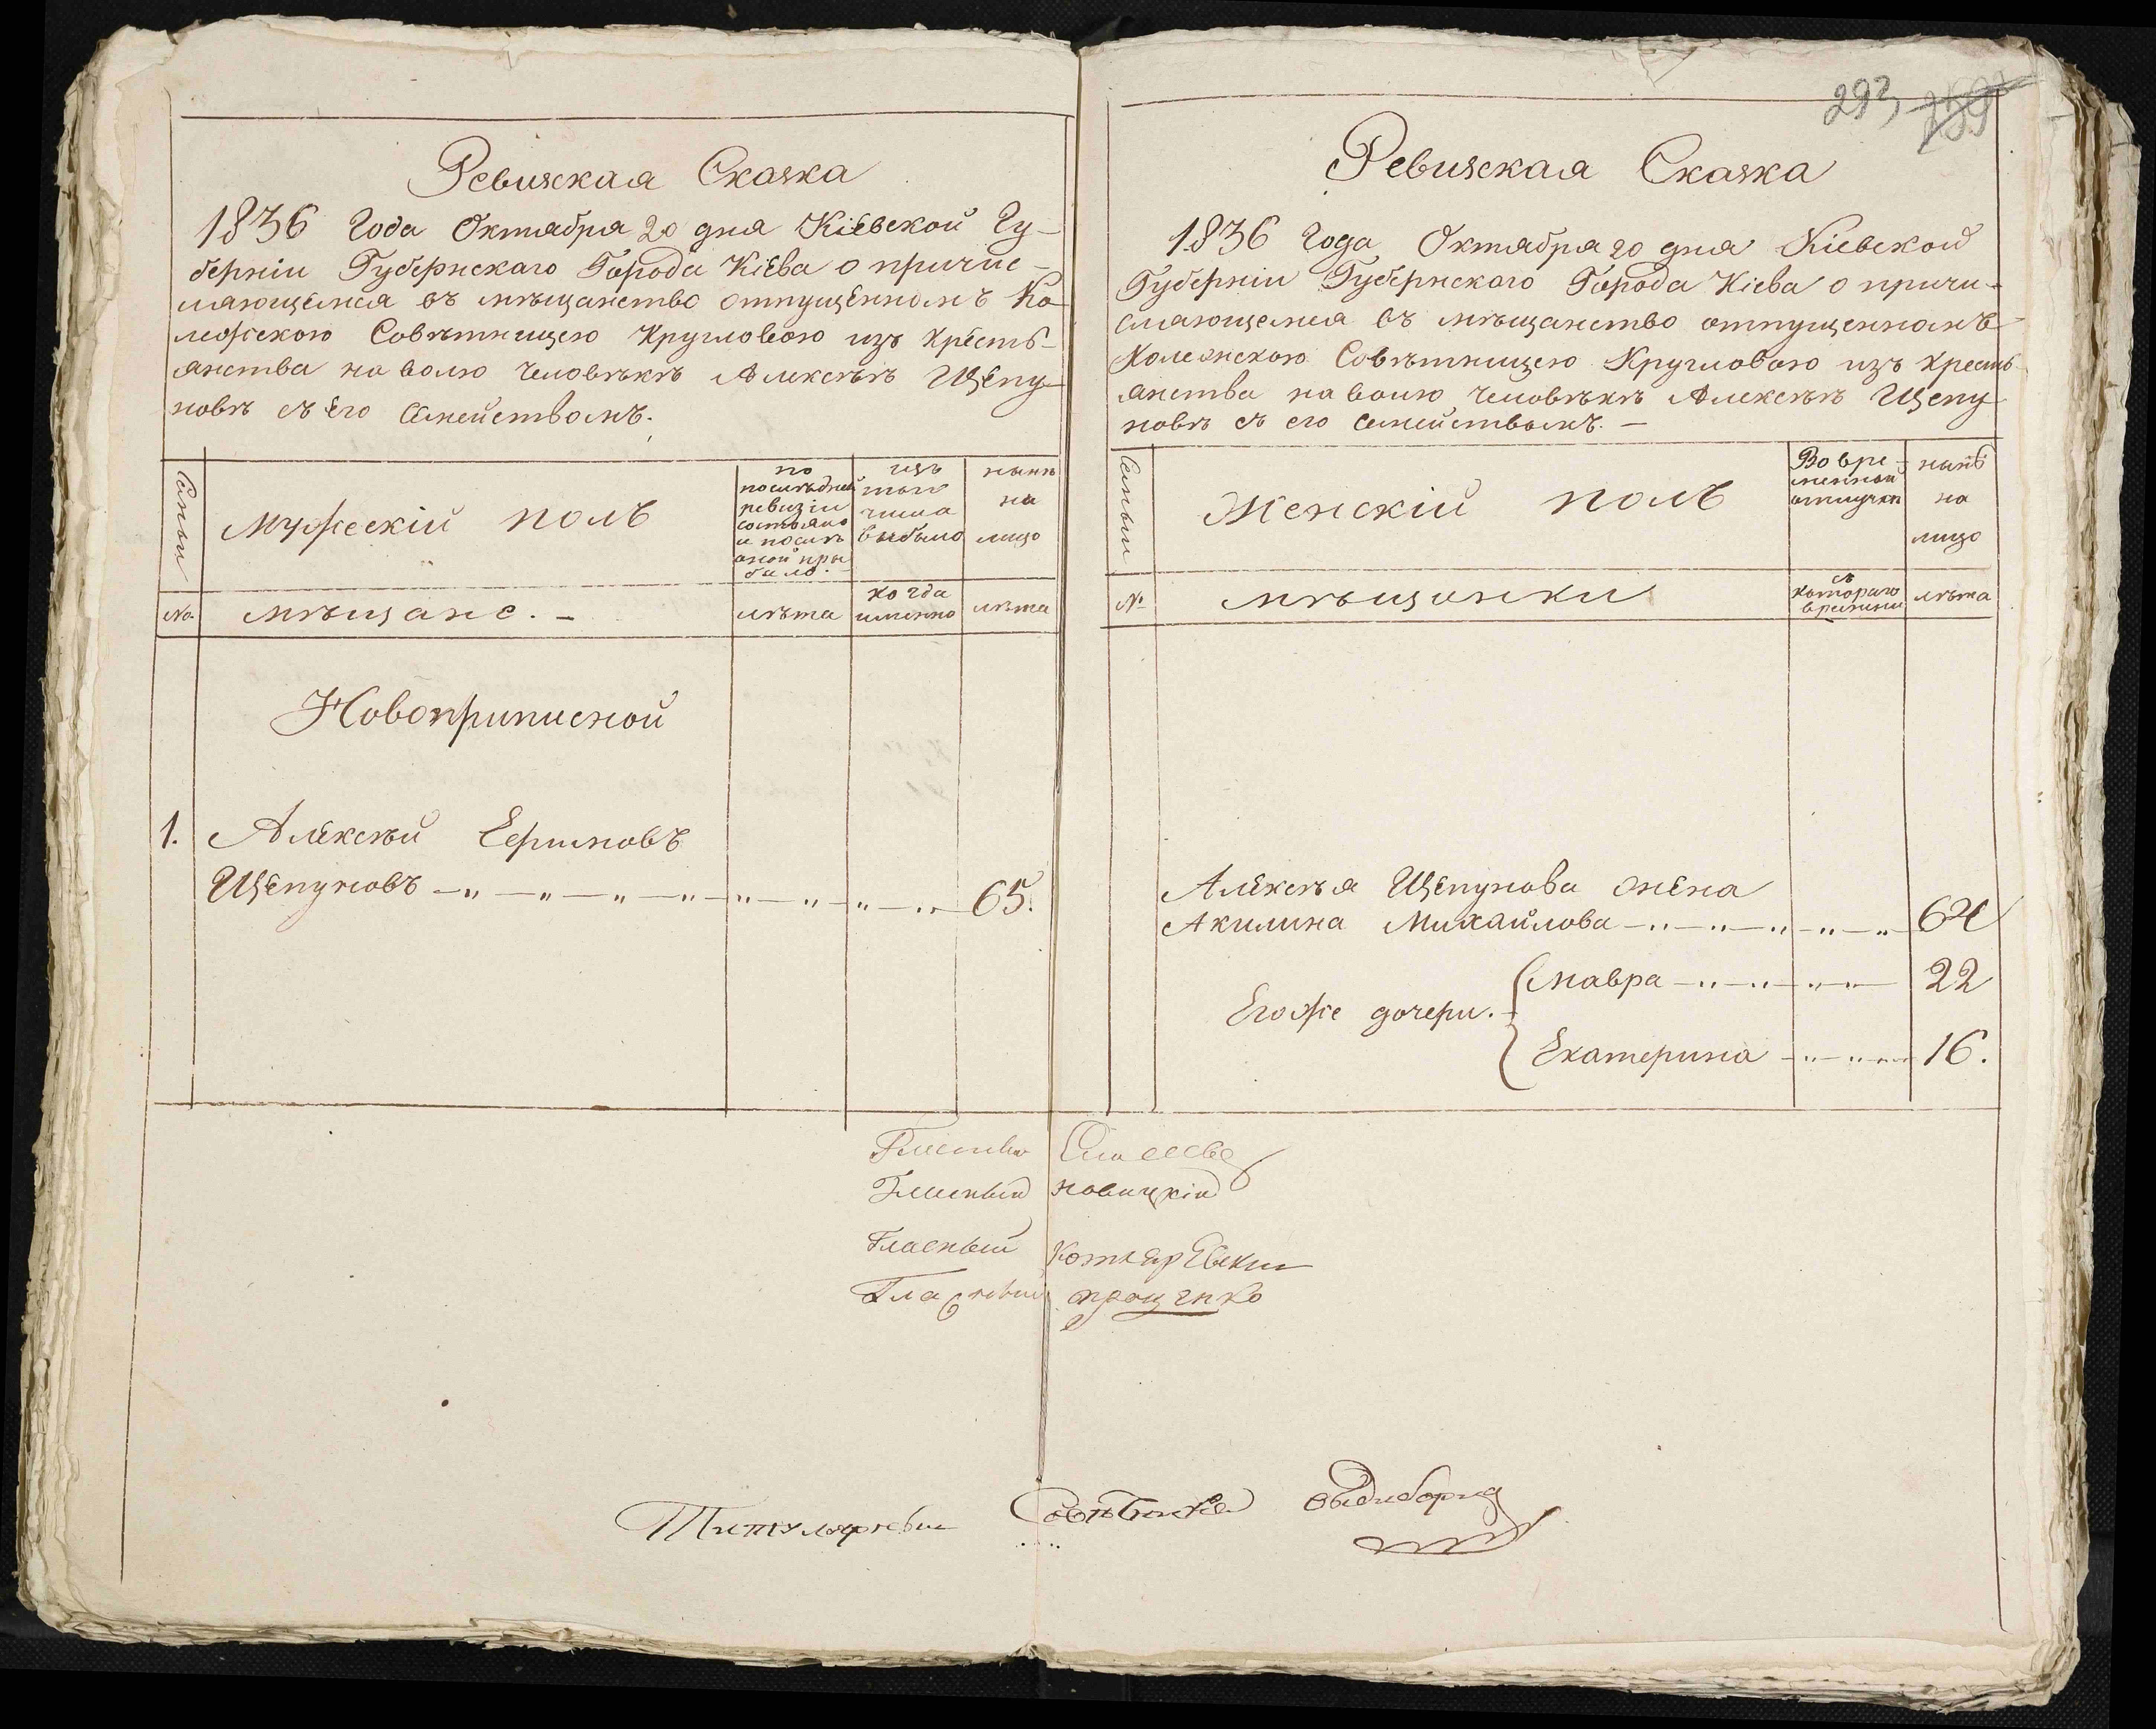 Ревизская Сказка
1836 Года Октября 20 дня Кіевской Гу-
берніи Губернскаго Города Кіева о причис-
ляющемся въ мѣщанство отпущенномъ Ко-
лежскою Совѣтницею Кругловою изъ кресть-
янства на волю человѣкѣ Алексѣѣ Щепу-
новѣ съ его семействомъ.
Семьи
Мужескій полъ
по
послѣдней
ревизіи
состояло
и послѣ
оной при
было.
изъ
того
числа
выбыло
нынѣ
на
лицо
№
мѣщане. -
лѣта
когда
именно
лѣта
Новоприписной
1. Алексѣй
Щепуновъ 65.
293 259
Ревизская Сказка
1836 Года Октября 20 дня Кіевской
Губерніи Губернскаго Города Кіева о причи-
сляющемся въ мѣщанство отпущенномъ
Колежскою Совѣтницею Кругловою изъ кресть
янства на волю человѣкѣ Алексѣѣ Щепу-
новѣ съ его семействомъ. -
Семьи
Женскій полъ
Во вре-
менной
отлучкѣ
нынѣ
на
лицо
№
мѣщанки
съ
котораго
времени
лѣта
Алексѣя Щепунова жена
Акилина Михайлова 64
Мавра 22
Его же дочери.
Екатерина 16.
Гласный
Гласный Новицкій
Гласный Котляревскій
Гласный Проценко
Титулярный Совѣтникъ